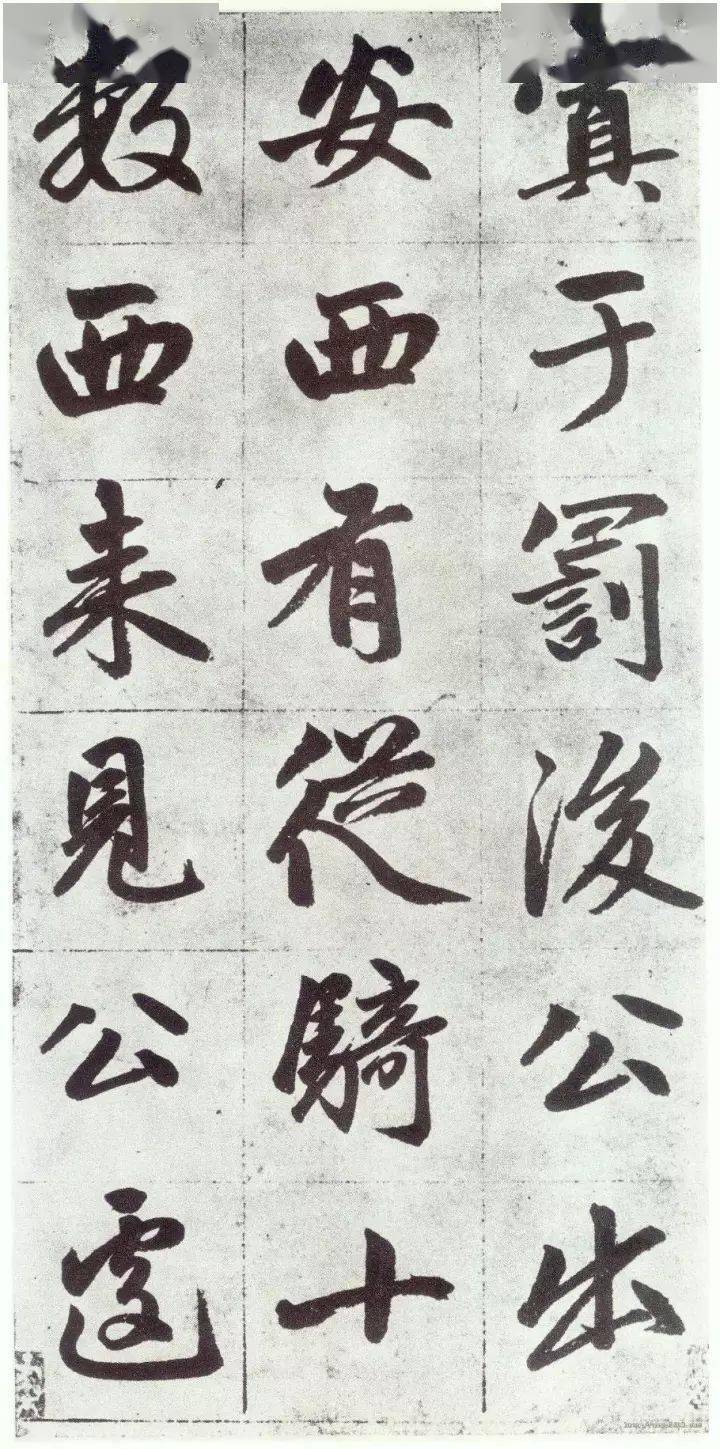 寘于罰後公出
安西有從騎十
數西来見公遽